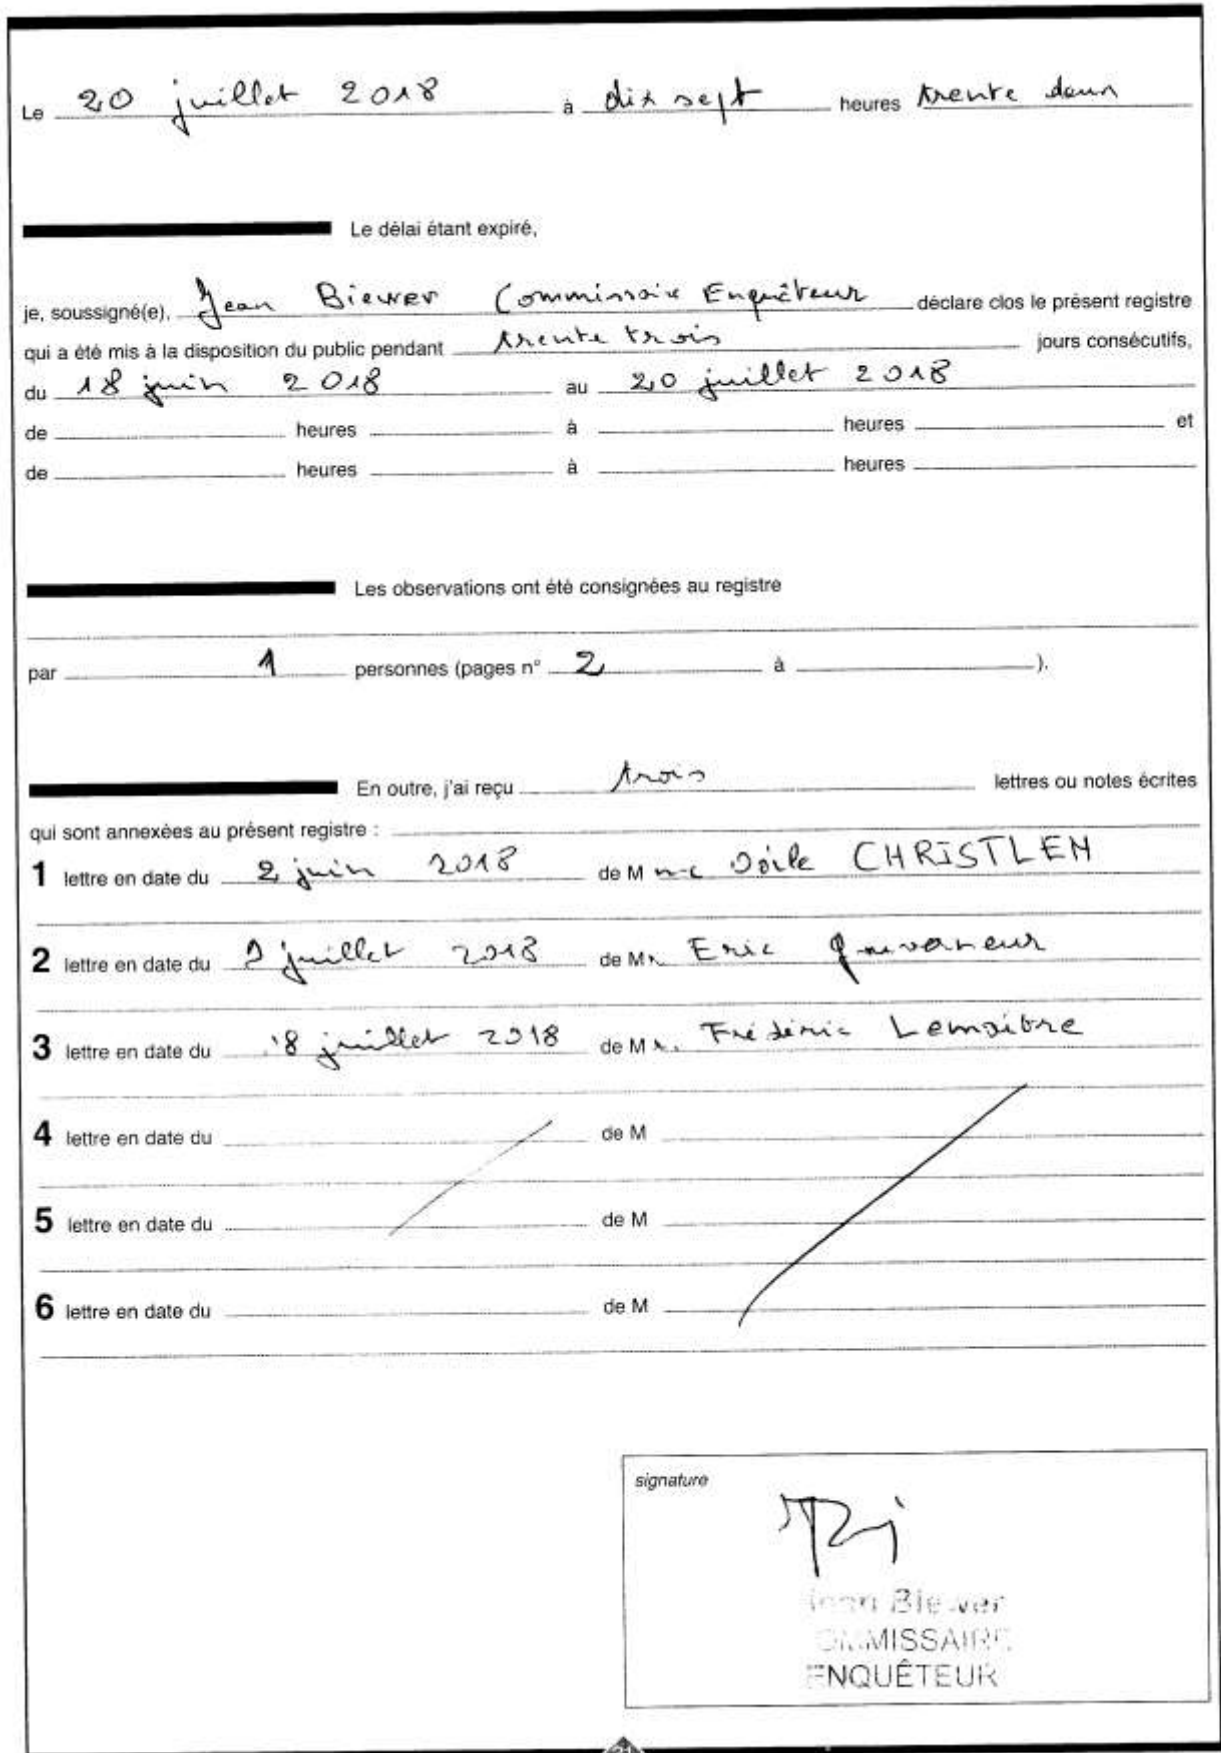 Le 20 juillet 2018 à dix sept heures trente deux
Le délai étant expiré,
je, soussigné(e), Jean Biewer Commissaire Enquêteur déclare clos le présent registre
qui a été mis à la disposition du public pendant trente trois jours consécutifs,
du 18 juin 2018 au 20 juillet 2018
de heures à heures et
de heures à heures
Les observations ont été consignées au registre
par 1 personnes (pages n° 2 à ).
En outre, j'ai reçu trois lettres ou notes écrites
qui sont annexées au présent registre :
1 lettre en date du 2 juin 2018 de Mme CHRISTLEN
2 lettre en date du juillet 2018 de Mr. Eric
3 lettre en date du 18 juillet 2018 de Mr. Frédéric Lemaitre
4 lettre en date du de M
5 lettre en date du de M
6 lettre en date du de M
signature
Jean Biewer
COMMISSAIRE
ENQUÊTEUR
21